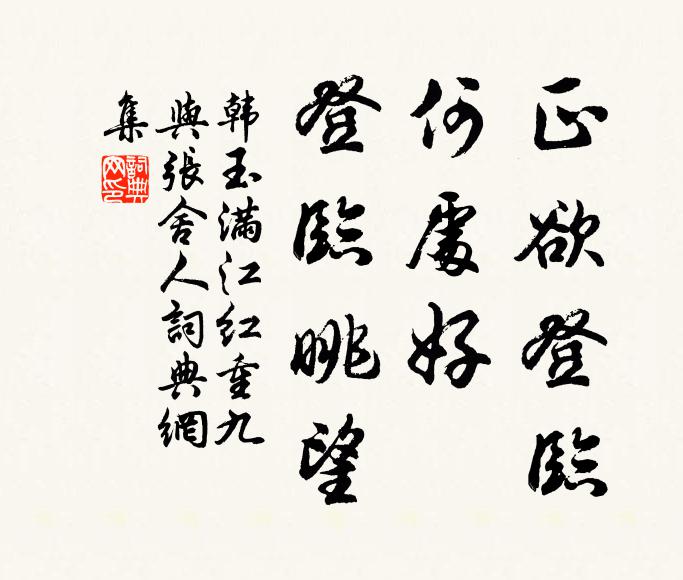 正欲登臨
何處好
登臨眺望
韩玉满江红重九
與張舍人詞典網
集
詞典
网印